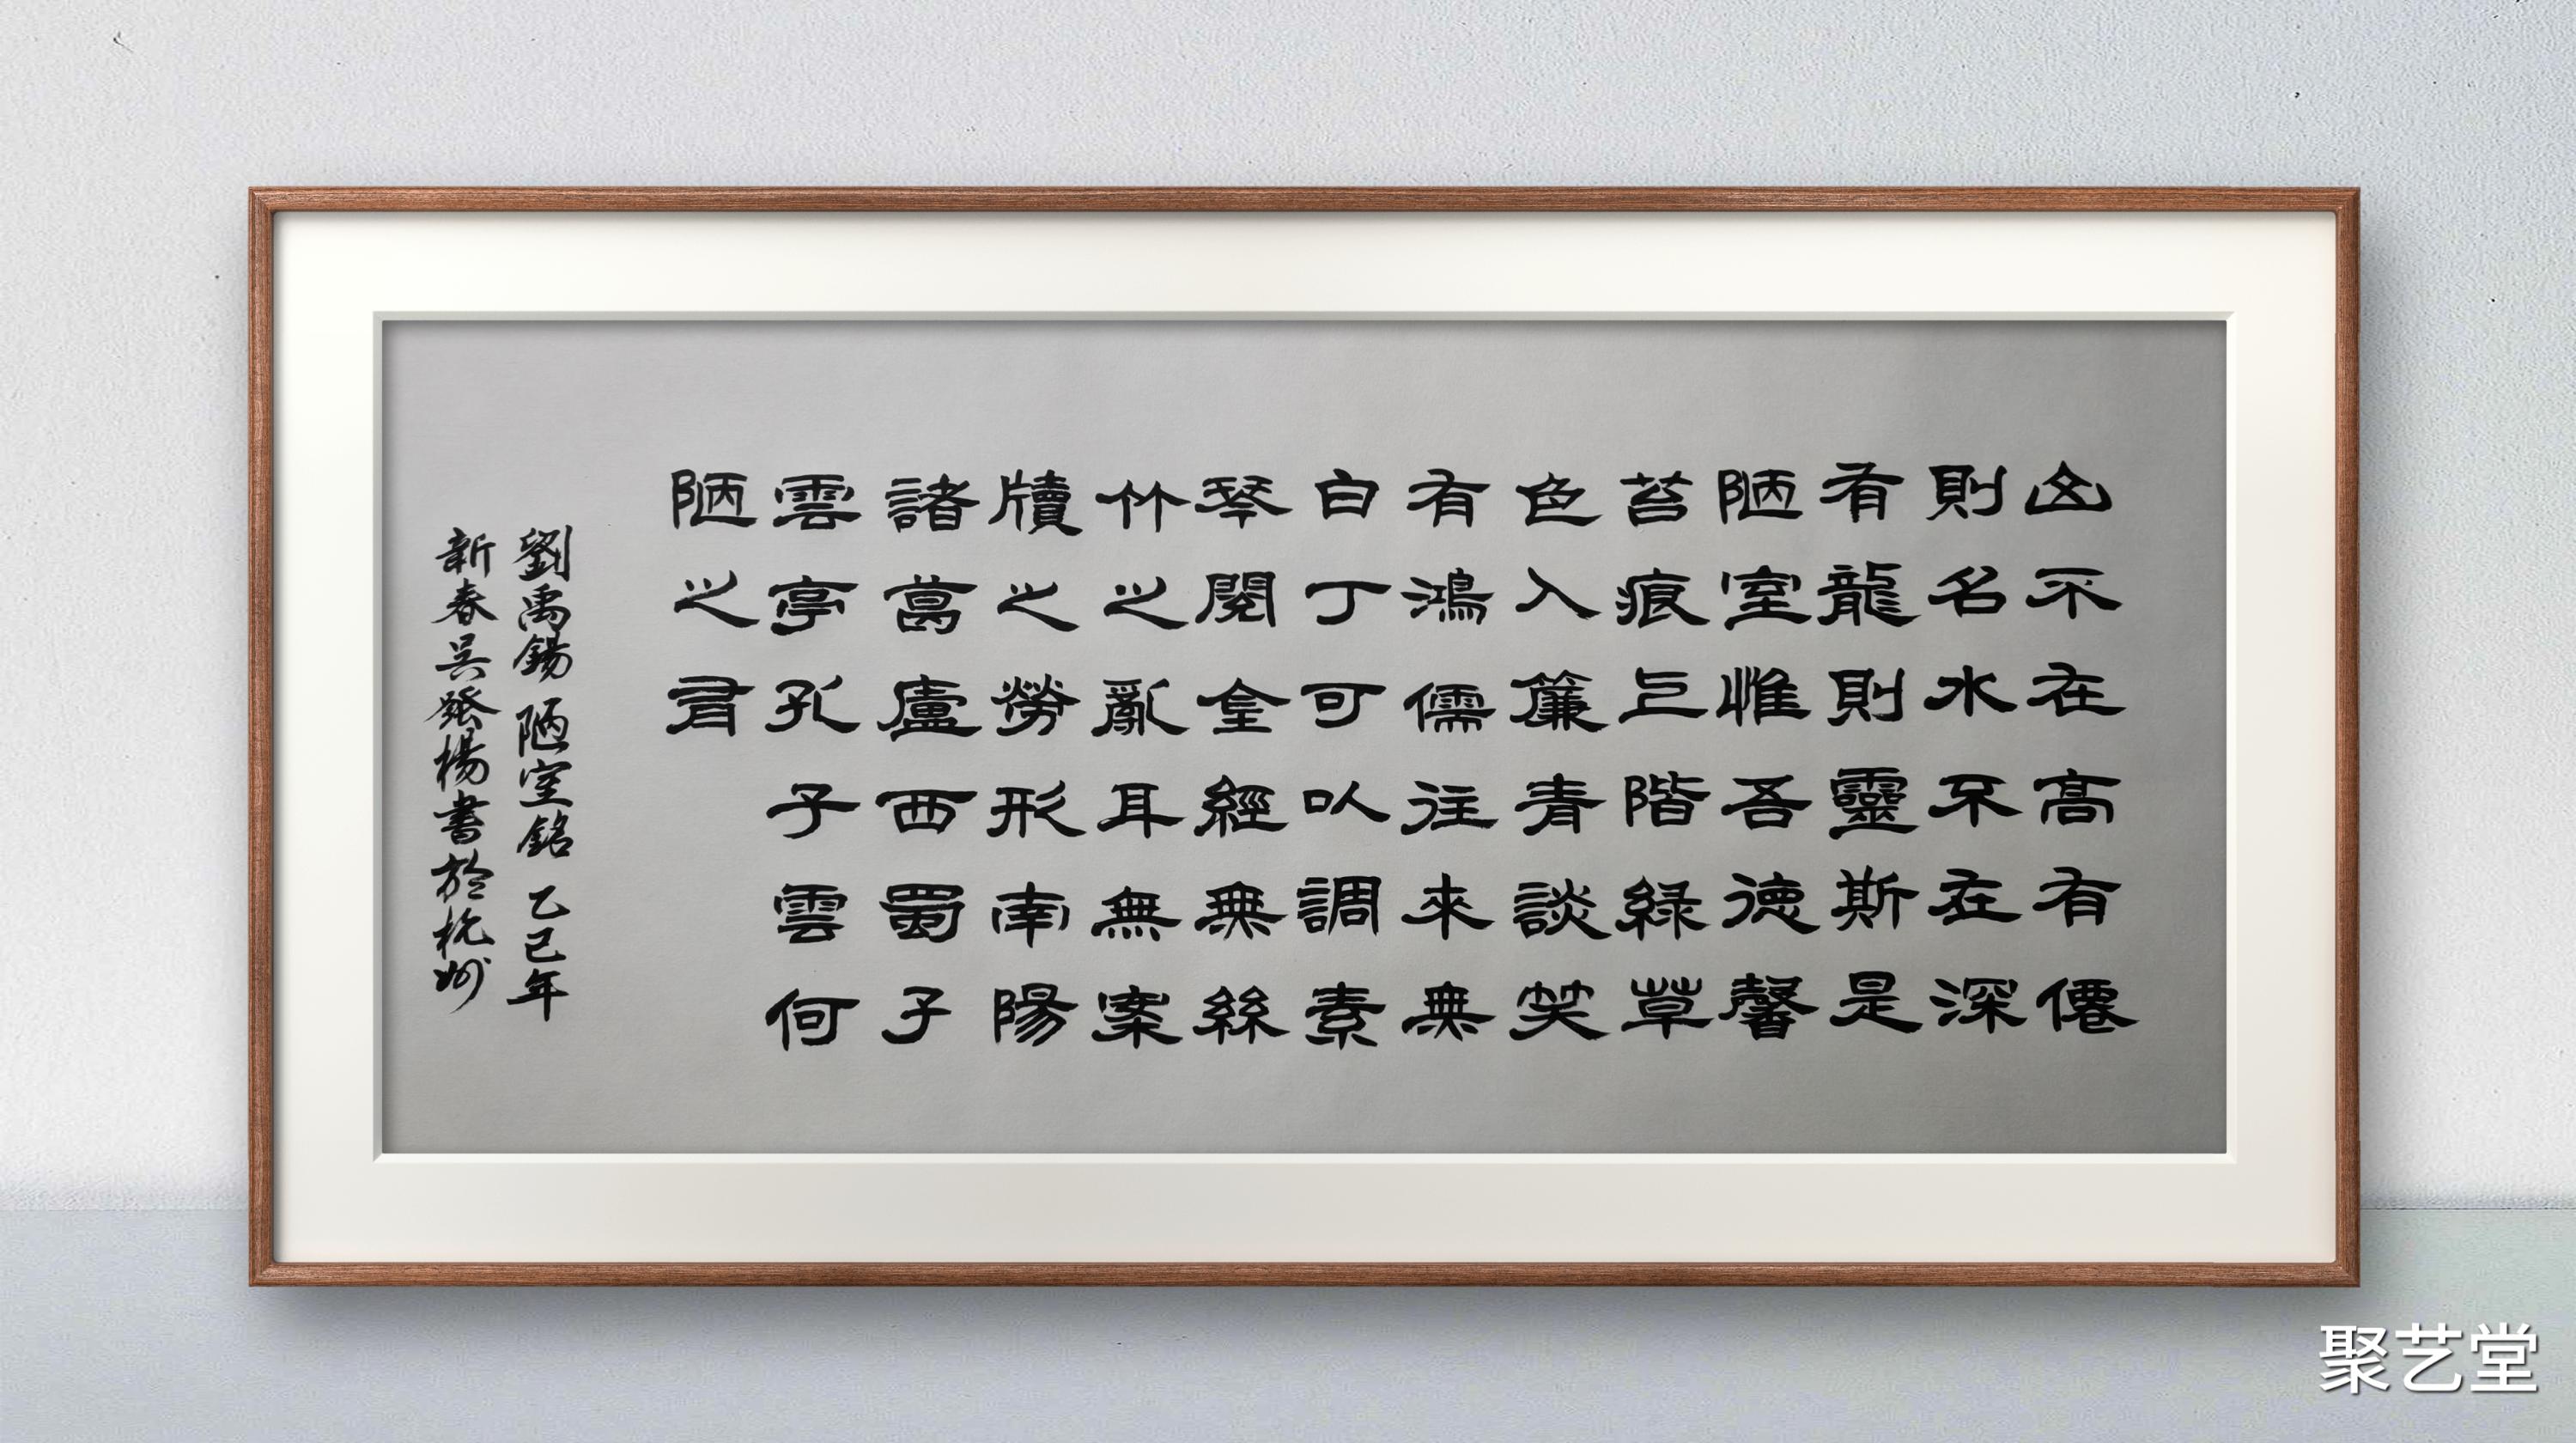 山不在高有僊
則名水不在深
有龍則靈斯是
陋室惟吾德馨
苔痕上階緑草
色入簾青談笑
有鴻儒往來無
白丁可以調素
琴閱金經無絲
竹之亂耳無案
牘之勞形南陽
諸葛廬西蜀子
雲亭孔子雲何
陋之有
劉禹錫 陋室銘 乙巳年
新春吳楊書於杭州
聚艺堂